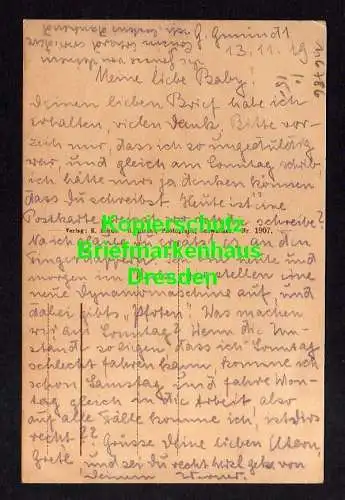 G. Gmünd 1
13.11.19
16786
Meine liebe Baby!
Deinen lieben Brief habe ich
erhalten, vielen Dank. Bitte ver-
zeih mir, dass ich so ungeduldig
war, und gleich am Sonntag schrieb
ich hätte mir ja denken können
dass Du schreibst. Heute ist eine
Postkarte
schreibe?
Verlag: K.
Nr. 1907.
an den
heute und
morgen stellen eine
neue Dynamomaschine auf, und
dabei gibts "Pfoten". Was machen
wir am Sonntag? Wenn die Um-
stände so liegen, dass ich Sonntag
schlecht fahren kann, komme ich
schon Samstag und fahre Mon-
tag gleich in die Arbeit also
auf alle Fälle komme ich, ist dirs
recht?? Grüsse Deine lieben Eltern,
Grete, und sei Du recht herzl. gek. von
Deinem Werner.
Kopierschutz
Briefmarkenhaus
Dresden